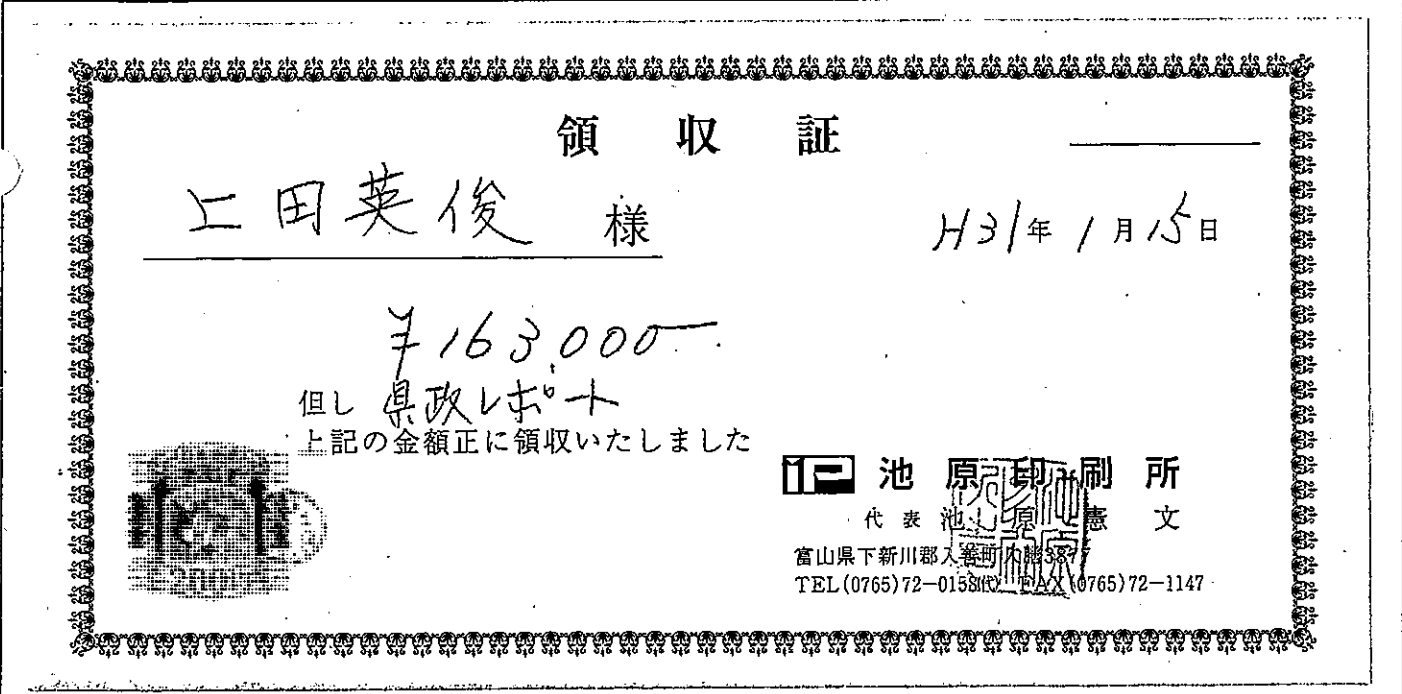 領収証
上田英俊 様
H31年1月15日
¥163,000
但し 県政レポート
上記の金額正に領収いたしました
池原印刷所
代表 池原憲文
富山県下新川郡入善町入膳
TEL(0765)72-0158(代) FAX(0765)72-1147
200